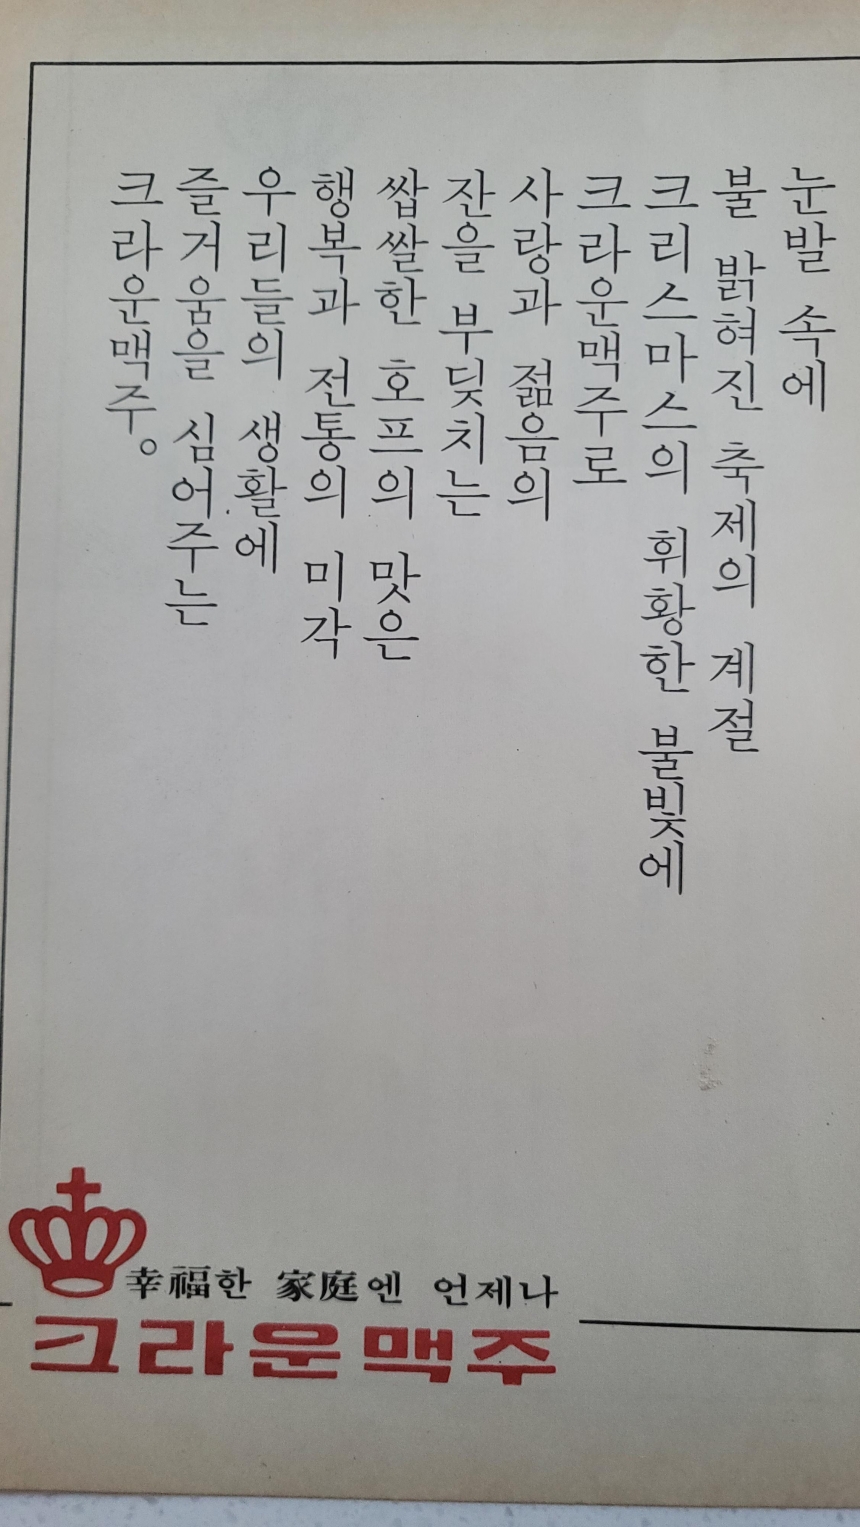 눈발 속에
불 밝혀진 축제의 계절
크리스마스의 휘황한 불빛에
크라운맥주로
사랑과 젊음의
잔을 부딪치는
쌉쌀한 호프의 맛은
행복과 전통의 미각
우리들의 생활에
즐거움을 심어주는
크라운맥주。
幸福한 家庭엔 언제나
크라운맥주